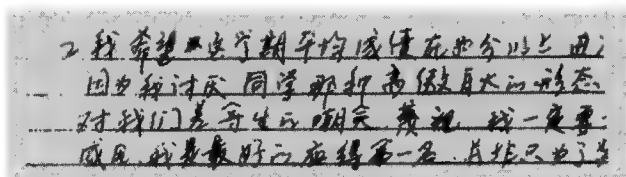 2 我希望这学期平均成绩在 分以上
因为我讨厌同学那种高傲自大的形态
对我们差等生的嘲笑 蔑视 我一定要
我是最好的应得第一名. 只为了